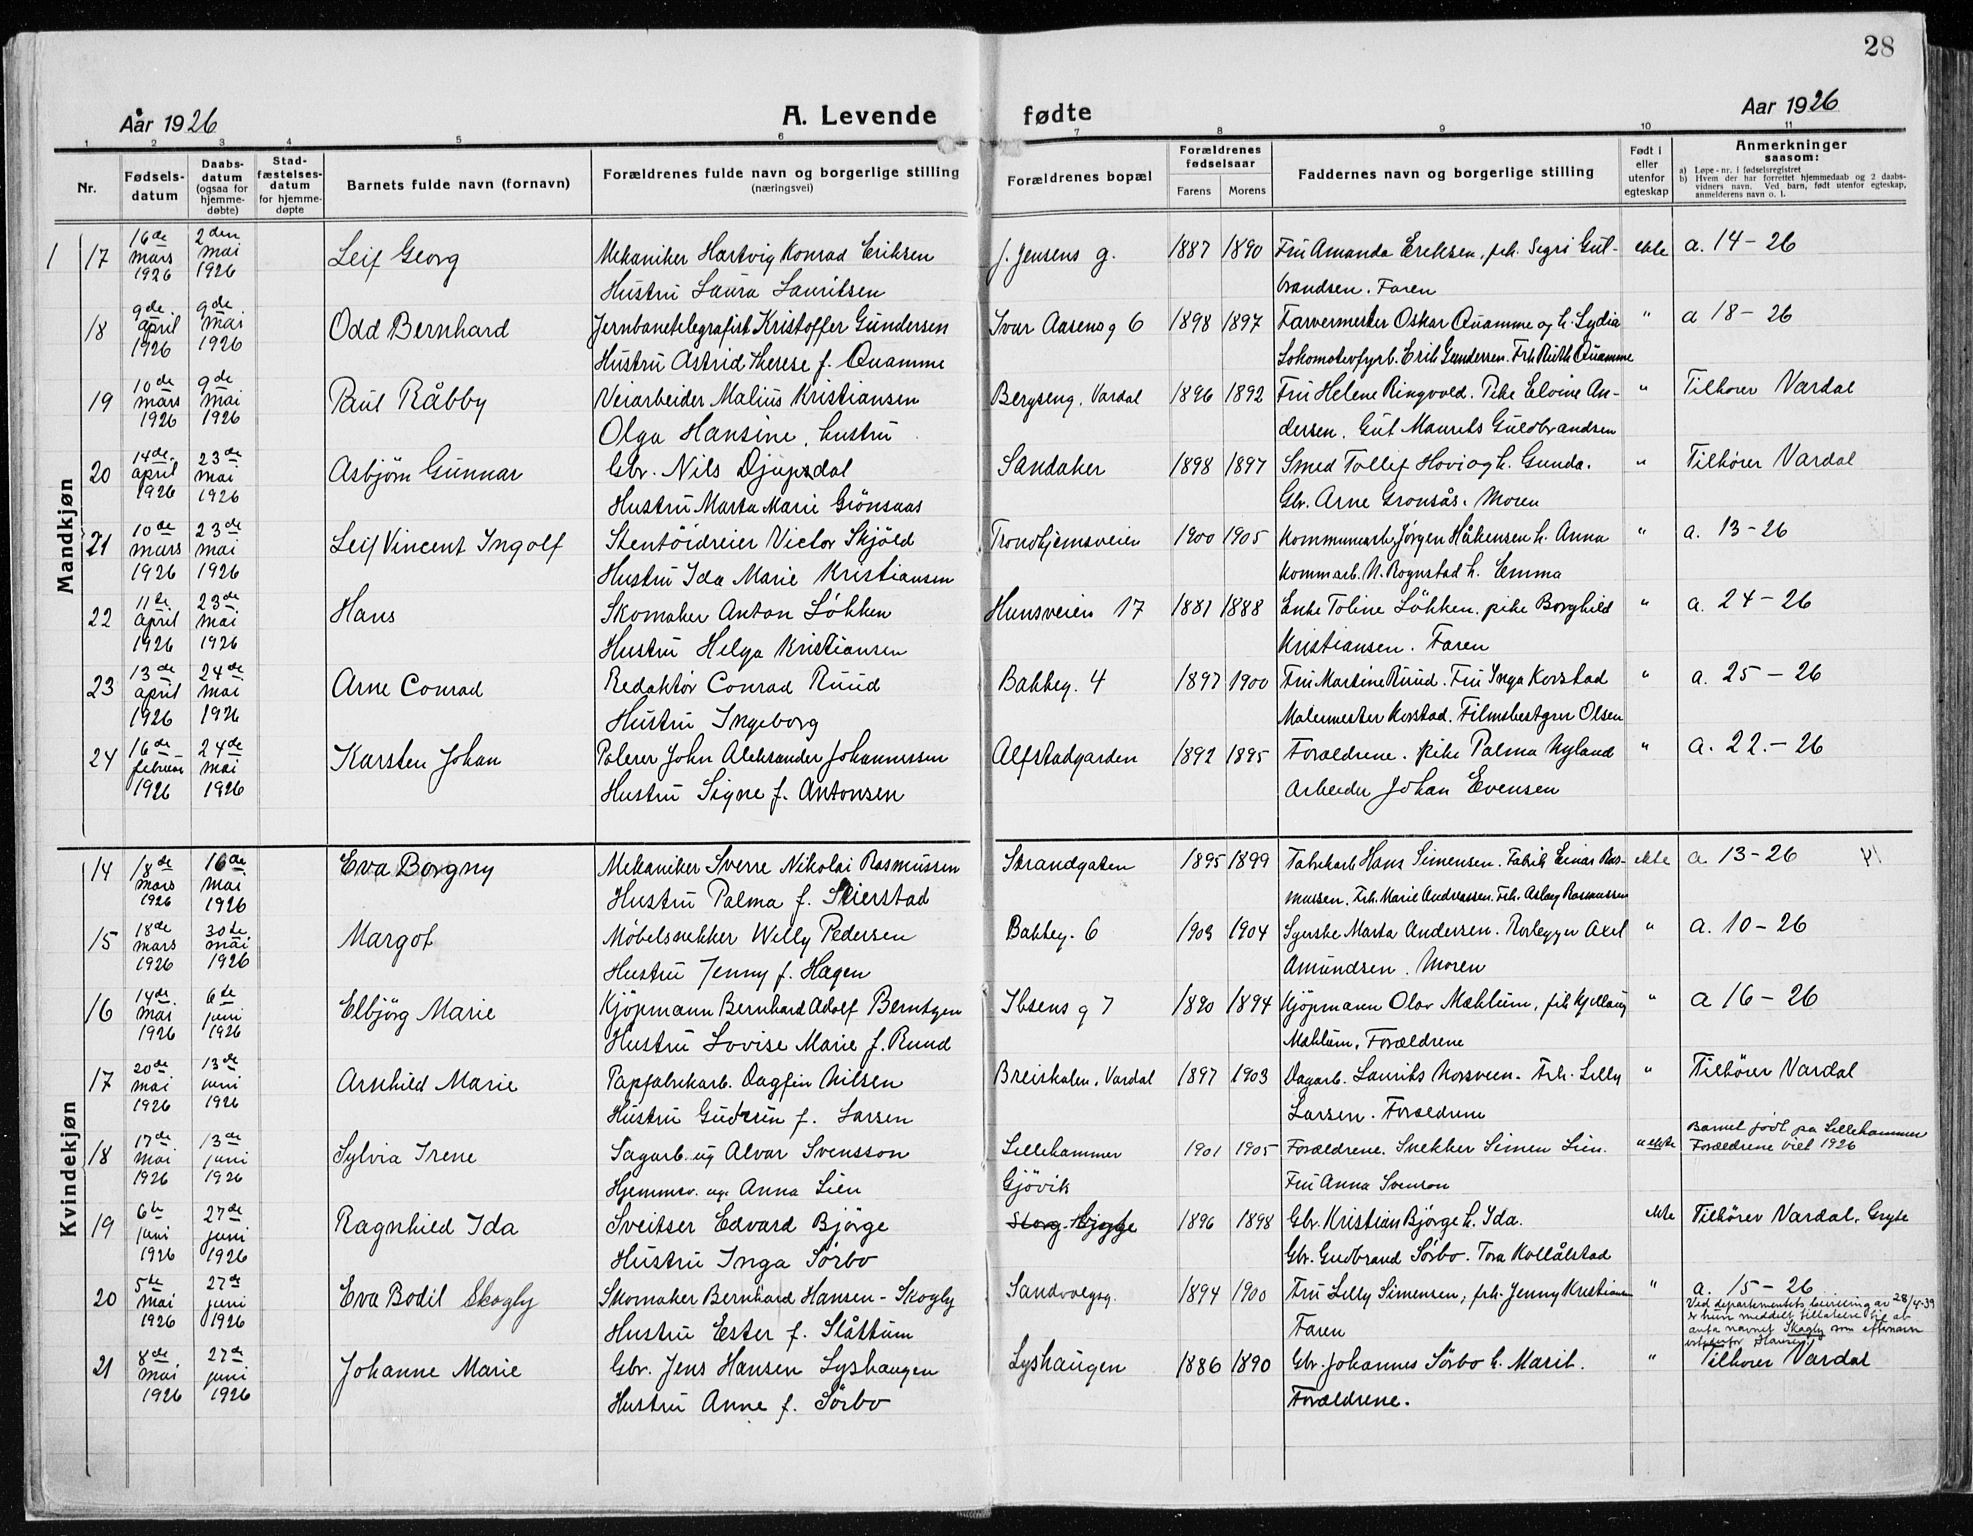 28
Aar 1926
A. Levende
fødte
Aar 1926
1 2 3 4 5 6 7 8 9 10 11
Nr.
Fødsels-
datum
Daabs-
datum
(ogsaa for
hjemme-
døbte)
Stad-
fæstelses-
datum
for hjemme-
døpte
Barnets fulde navn (fornavn)
Forældrenes fulde navn og borgerlige stilling
(næringsvei)
Forældrenes bopæl
Forældrenes
fødselsaar
Farens Morens
Faddernes navn og borgerlige stilling
Født i
eller
utenfor
egteskap
Anmerkninger
saasom:
a) Løpe-nr. i fødselsregistret
b) Hvem der har forrettet hjemmedaab og 2 daabs-
vidners navn. Ved barn, født utenfor egteskap,
anmelderens navn o. l.
Mandkjøn
1 17 16de mars 1926 2den mai 1926 Leif Georg Mekaniker Hartvig Konrad Eriksen J. Jensens g. 1887 1890 Fru Amanda Eriksen, frk. Segri Gul- ekte a. 14-26
Hustru Laura Lauritsen brandsen. Faren
18 9de april 1926 9de mai 1926 Odd Bernhard Jernbanetelegrafist Kristoffer Gundersen Ivar Aasens g 6 1898 1897 Farvermester Oskar Quamme og h. Lydia " a 18-26
Hustru Astrid Therese f. Quamme Lokomotivfyrb. Erik Gundersen. Frk Ruth Quamme
19 10de mars 1926 9de mai 1926 Paul Råbby Veiarbeider Malius Kristiansen Bergseng, Vardal 1896 1892 Fru Helene Ringvold. Pike Elvine An- " Tilhører Vardal
Olga Hansine, hustru dersen. Gut Maurits Guldbrandsen
20 14de april 1926 23de mai 1926 Asbjörn Gunnar Gbr. Nils Djupsdal Sandaker 1898 1897 Smed Tollef Hovi og h. Gunda. " Tilhører Vardal
Hustru Marta Marie Grönsaas Gbr. Arne Gronsås. Moren
21 10de mars 1926 23de mai 1926 Leif Vincent Ingolf Stentöidreier Victor Skjöld Trondhjemsveien 1900 1905 Kommunearb. Jørgen Håkensen h. Anna " a. 13-26
Hustru Ida Marie Kristiansen Kommarb. N. Rognstad h. Emma
22 11te april 1926 23de mai 1926 Hans Skomaker Anton Lökken Hunsveien 17 1881 1888 Enke Toline Lökken. pike Borghild " a. 24-26
Hustru Helga Kristiansen Kristiansen. Faren
23 13de april 1926 24de mai 1926 Arne Conrad Redaktör Conrad Ruud Bakkeg. 4 1897 1900 Fru Martine Ruud. Fru Inga Korstad " a. 25-26
Hustru Ingeborg Malermester Korstad. Filmsbestyrer Olsen
24 16de februar 1926 24de mai 1926 Karsten Johan Polerer John Aleksander Johannessen Alfstadgarden 1892 1895 Forældrene. pike Palma Nyland " a. 22.-26
Hustru Signe f. Antonsen Arbeider Johan Evensen
Kvindekjøn
14 18de mars 1926 16de mai 1926 Eva Borgny Mekaniker Sverre Nikolai Rasmussen Strandgaten 1895 1899 Fabrikarb Hans Simensen. Fabrik Einar Ras- ekte a. 13-26
Hustru Palma f. Skierstad mussen. Frk. Marie Andreassen. Frk. Aslaug Rasmussen
15 18de mars 1926 30te mai 1926 Margot Møbelsnekker Willy Pedersen Bakkeg. 6 1903 1904 Syerske Marta Andersen. Rørlegger Axel " a. 10-26
Hustru Jenny f. Hagen Amundsen. Moren
16 14de mai 1926 6te juni 1926 Elbjörg Marie Kjöpmann Bernhard Adolf Berntzen Ibsens g 7 1890 1894 Kjöpmann Olav Mæhlum, frk Kjellaug " a 16-26
Hustru Lovise Marie f. Ruud Mæhlum, Forældrene
17 20de mai 1926 13de juni 1926 Arnhild Marie Papfabrikarb. Dagfin Nilsen Breiskalen, Vardal 1897 1903 Dagarb. Laurits Norsveen. Frk. Lilly " Tilhører Vardal
Hustru Gudrun f. Larsen Larsen. Forældrene
18 17de mai 1926 13de juni 1926 Sylvia Irene Sagarb. ug Alvar Svensson Lillehammer 1901 1905 Forældrene. Snekker Simen Lien. uekte Barnet født på Lillehammer
Forældrene viet 1926
Hjemmev. ug. Anna Lien Gjövik Fru Anna Svenson
19 6te juni 1926 27de juni 1926 Ragnhild Ida Sveitser Edvard Bjørge 1896 1898 Gbr. Kristian Bjørge h. Ida. ekte Tilhører Vardal, Gryte
Hustru Inga Sørbo Gbr. Gudbrand Sørbo. Tora Kollålstad
20 5te mai 1926 27de juni 1926 Eva Bodil Skogly Skomaker Bernhard Hansen-Skogly Sandvolgsg. 1894 1900 Fru Lilly Simensen, frk. Jenny Kristiansen " a. 15-26
Hustru Ester f. Slåttum Faren
Ved departementets bevilling av 28/4-39
er hun meddelt tillatelse til at
anta navnet Skogly som efternavn
istedenfor Hansen
21 8de mai 1926 27de juni 1926 Johanne Marie Gbr. Jens Hansen Lyshaugen Lyshaugen 1886 1890 Gbr. Johannes Sörbo h. Marit. " Tilhører Vardal
Hustru Anne f. Sörbo Forældrene.